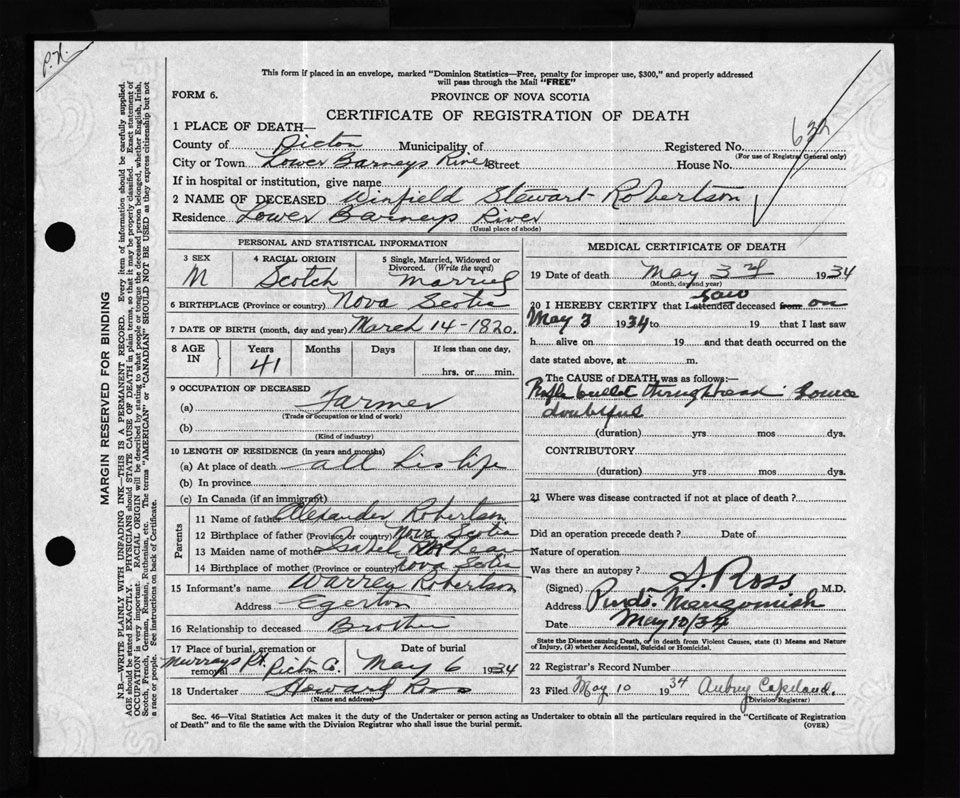 P.H.
This form if placed in an envelope, marked "Dominion Statistics—Free, penalty for improper use, $300," and properly addressed
will pass through the Mail "FREE"
FORM 6.
PROVINCE OF NOVA SCOTIA
CERTIFICATE OF REGISTRATION OF DEATH
1 PLACE OF DEATH—
County of Pictou Municipality of Registered No.
(For use of Registrar General only)
City or Town Lower Barneys River Street House No.
If in hospital or institution, give name
2 NAME OF DECEASED Winfield Stewart Robertson
Residence Lower Barneys River
(Usual place of abode)
PERSONAL AND STATISTICAL INFORMATION
3 SEX M
4 RACIAL ORIGIN Scotch
5 Single, Married, Widowed or Divorced. (Write the word) Married
6 BIRTHPLACE (Province or country) Nova Scotia
7 DATE OF BIRTH (month, day and year) March 14-1820.
8 AGE IN Years 41 Months Days If less than one day, hrs. or min.
9 OCCUPATION OF DECEASED
(a) Farmer
(Trade or occupation or kind of work)
(b)
(Kind of industry)
10 LENGTH OF RESIDENCE (in years and months)
(a) At place of death all his life
(b) In province
(c) In Canada (if an immigrant)
Parents
11 Name of father Alexander Robertson
12 Birthplace of father (Province or country) Nova Scotia
13 Maiden name of mother Isabel McLean
14 Birthplace of mother (Province or country) Nova Scotia
15 Informant's name Warren Robertson
Address Egerton
16 Relationship to deceased Brother
17 Place of burial, cremation or removal Murrays Pt. Pictou Co. Date of burial May 6 1934
18 Undertaker Howard Ross
(Name and address)
MEDICAL CERTIFICATE OF DEATH
19 Date of death May 3rd 1934
(Month, day and year)
20 I HEREBY CERTIFY that I attended saw deceased from on
May 3 1934 to 19 that I last saw
h alive on 19 and that death occurred on the
date stated above, at m.
The CAUSE OF DEATH was as follows:—
Rifle bullet through head
doubtful
(duration) yrs mos dys.
CONTRIBUTORY
(duration) yrs mos dys.
21 Where was disease contracted if not at place of death?
Did an operation precede death? Date of
Nature of operation
Was there an autopsy?
(Signed) S. Ross M.D.
Address Merigomish
Date May 10/34
State the Disease causing Death, or in death from Violent Causes, state (1) Means and Nature
of Injury, (2) whether Accidental, Suicidal or Homicidal.
22 Registrar's Record Number
23 Filed May 10 1934 Aubrey Copeland.
(Division Registrar)
Sec. 46—Vital Statistics Act makes it the duty of the Undertaker or person acting as Undertaker to obtain all the particulars required in the "Certificate of Registration
of Death" and to file the same with the Division Registrar who shall issue the burial permit.
(OVER)
MARGIN RESERVED FOR BINDING
N.B.—WRITE PLAINLY WITH UNFADING INK—THIS IS A PERMANENT RECORD. Every item of information should be carefully supplied.
AGE should be stated EXACTLY. PHYSICIANS should STATE CAUSE OF DEATH in plain terms, so that it may be properly classified. Exact statement of
OCCUPATION is very important. RACIAL ORIGIN will be described by stating to what people or tongue the deceased person belonged, whether English, Irish,
Scotch, French, German, Russian, Ruthenian, etc. The terms "AMERICAN" or "CANADIAN" SHOULD NOT BE USED as they express citizenship but not
a race or people. See instructions on back of Certificate.